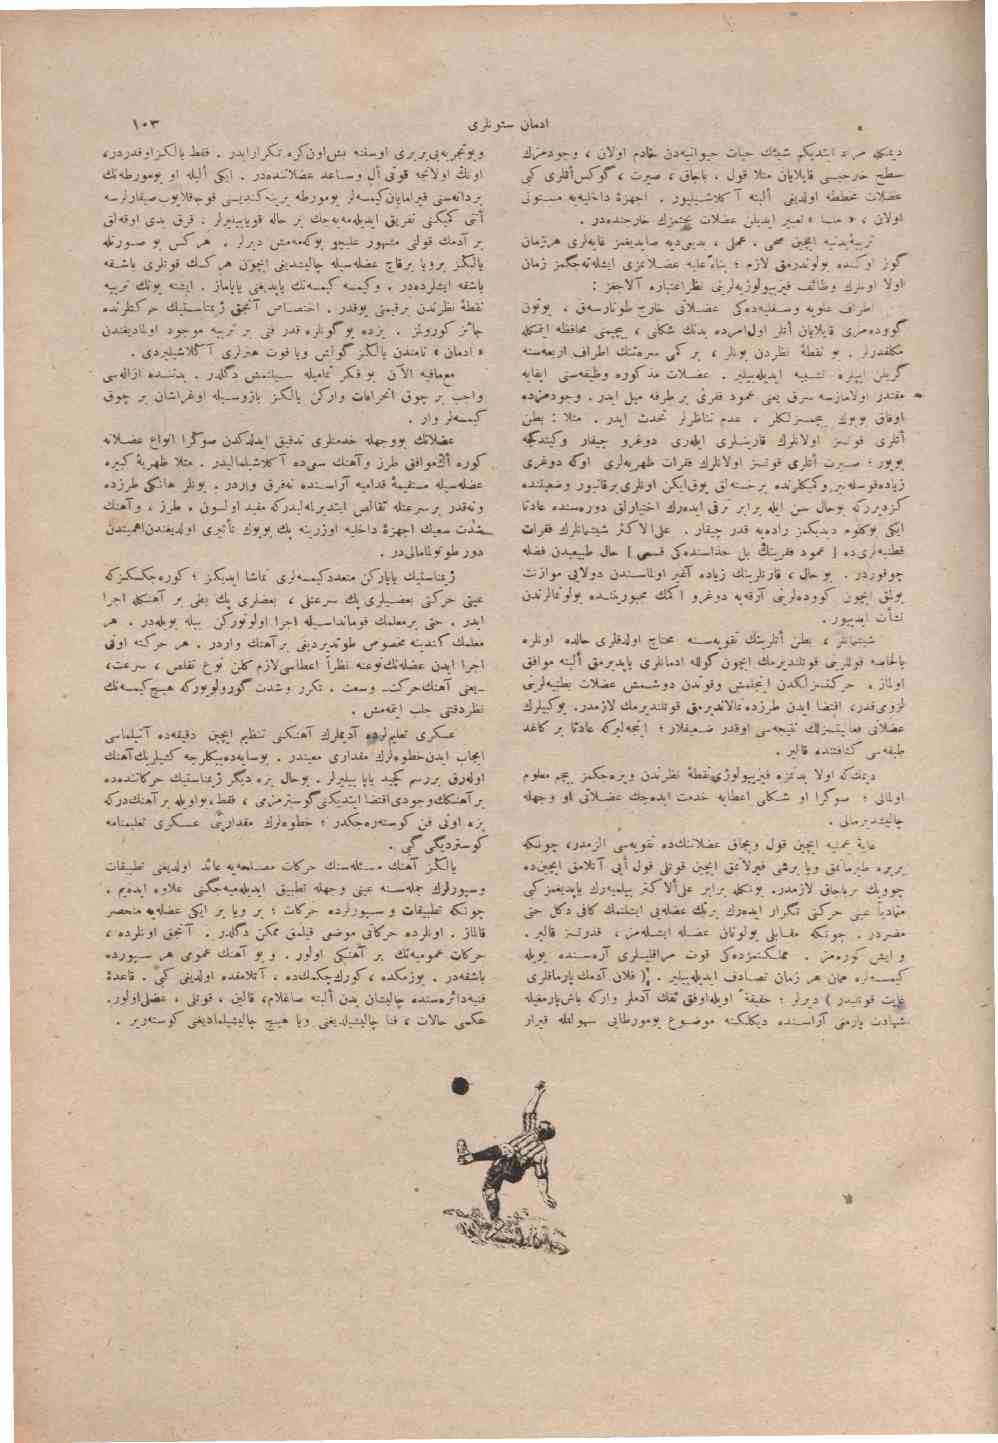 ادمان ستونلری
١٠٣
دیمکله مراد ایتدیکم شیئك حیات حیوانیه‌دن خادم اولان ، وجودمزك
سطح خارجیسی قاپلایان مثلا قول ، باجاق ، صیرت ، گوکس آتلری کبی
عضلات مخططه اولدیغی ألبته آ كلاشیلیور . اجهزهٔ داخلیه‌یه مستولی
اولان ، « ملسا » تعبیر ایدیلن عضلات بحثمزك خارجنده‌در .
تربیهٔ بدنیه ایچین صحی ، عملی ، بدیعی دیه صایدیغمز غایه‌لری هر زمان
گوز اوکنده بولوندرمق لازم ؛ بناءً علیه عضلاتمزی ایشله‌ته‌جگمز زمان
اولا اونلرك وظائف فیزیولوژیه‌لرینی نظر اعتباره آلاجغز :
اطراف علویه وسفلیه‌ده‌کی عضلاتی خارج طوتارسه‌ق ، بوتون
گووده‌مزی قاپلایان أتلر اول امرده بدنك شکلنی ، بیچیمنی محافظه ایتمکله
مکلفدرلر . بو نقطهٔ نظردن بونلر ، بر کمی سره‌نك اطراف اربعه‌سنه
گریلن ایپلره تشبیه ایدیله‌بیلیر . عضلات مذکوره وظیفه‌سنی ایفایه
مقتدر اولامازسه سرن یعنی عمود فقری بر طرفه میل ایدر . وجودمزده
اوفاق بویوك بیچمسزلکلر ، عدم تناظرلر تحدث ایدر . مثلا : بطن
أتلری قوتسز اولانلرك قارینلری ایلری دوغرو چیقار وکیتدکجه
بویور ؛ صیرت أتلری قوتسز اولانلرك فقرات ظهریه‌لری اوکه دوغری
زیاده قوسله‌نیر وکمیکلرنده بر خسته‌لق یوق ایکن اونلری بر قانبور وضعیتنده
گزدیررکه بوحال سن ایله برابر ترقی ایده‌رك اختیارلق دوره‌سنده عادتا
ایکی بوکلوم دیدیکمز راده‌یه قدر چیقار . علی الاکثر شیشمانلرك فقرات
قطنیه‌لری‌ده [ عمود فقرینك بل حذاسنده‌کی قسمی ] حال طبیعیدن فضله
چوقوردر . بو حال ، قارنلرینك زیاده آغیر اولماسندن دولایی موازنت
بولمق ایچون گووده‌لرینی آرقه‌یه دوغرو اکمك مجبوریتنده بولونمالرندن
نشأت ایدییور .
شیشمانلر ، بطن أتلرینك تقویه‌سنه محتاج اولدقلری حالده اونلره
بالخاصه قوللرینی قوتلندیرمك ایچون گولله ادمانلری یاپدیرمق ألبته موافق
اولماز . حرکتسزلکدن اینجلمش وقوتدن دوشمش عضلات بطنیه‌لرینی
لزومی قدر، اقتضا ایدن طرزده تمالاندیرمق قوتلندیرمك لازمدر. یوکییلرك
عضلاتی فعالیتسزلك نتیجه‌سی اوقدر ضعیفلار ؛ اینجه‌لیرکه عادتا بر کاغد
طبقه‌سی کثافتنده قالیر .
دیمك‌که اولا بدنمزه فیزیولوژی نقطهٔ نظرندن ویره‌جکمز بیچم معلوم
اولمالی ؛ صوکرا او شکلی اعطایه خدمت ایده‌جك عضلاتی او وجهله
چالیشدیرمالی .
غایهٔ عملیه ایچین قول وباجاق عضلاتنك‌ده تقویه‌سی الزمدر، چونکه
بریره طیرمانمق ویا برشی فیرلاتمق ایچین قوتلی قول أیی آتلامق ایچین‌ده
چویك بر باجاق لازمدر. بونکله برابر علی الاکثر بیلمیه‌رك یاپدیغمز کبی
متمادیاً عینی حرکتی تکرار ایده‌رك برتك عضله‌یی ایشلتمك کافی دکل حتی
مضردر. چونکه مقابلی بولونان عضله ایشله‌مز ، قدرتسز قالیر.
و ایش کوره‌مز . مملکتمزده‌کی قوت مراقلیلری آره‌سنده بویله
کیمسه‌لره همان هر زمان تصادف ایدیله‌بیلیر . ( فلان آدمك پارماقلری
غایت قوتلیدر ) دیرلر ؛ حقیقةً اویله اوفق تفك آدملر وارکه باش پارمغیله
شهادت پارمغی آراسنده دیکلکنه موضوع یومورطایی سهولتله قیرار
وبوتجربه‌یی بربری اوستنه بش اون کره تکرار ایدر . فقط یالکز اوقدردر،
اونك اولانجه قوتی أل وساعد عضلاتنده‌در . ایکی ألیله او یومورطه‌نك
بردانه‌سنی قیرامایان کیمسه‌لر یومورطه یرینه کندیسنی قوجاقلایوب صیقارلرسه
أتنی کمیکنی تفریق ایدیله‌مه‌یه‌جك بر حاله قویابیلیرلر . قرق یدی اوقه‌لق
بر آدمك قولنی مشهور علیچو بوکه‌مه‌مش دیرلر . هرکس بو صورتله
یالکز برویا برقاچ عضله‌سیله چالیشدیغی ایچون هرکسك قوتلری باشقه
باشقه ایشلرده‌در . وکیمسه کیمسه‌نك یاپدیغنی یاپاماز . ایشته بونك تربیه
نقطهٔ نظرندن برقیمتی یوقدر . اختصاص آنجق ژیمناستیك حرکتلرنده
جائز کورولور . بزده بوگونلره قدر فنی بر تربیه موجود اولمادیغندن
« ادمان » نامندن یالکز گولش ویا قوت هنرلری آ کلاشیلیردی .
مع‌مافیه الآن بو فکر تمامیله سیلنمش دگلدر . بدننده ازاله‌سی
واجب بر چوق انحرافات وارکن یالکز بازوسیله اوغراشان بر چوق
کیمسه‌لر وار .
عضلاتك بووجهله خدمتلری تدقیق ایدلدکدن صوکرا انواع عضلاته
کوره أك موافق طرز وآهنك سعی‌ده آ کلاشیلمالیدر . مثلا ظهریهٔ کبیره
عضله‌سیله مستقیمهٔ قدامیه آراسنده نه فرق واردر . بونلر هانکی طرزده
ونه‌قدر بر سرعتله تقالص ایتدیریلمه‌لیدرکه مفید اولسون . طرز ، وآهنك
شدت سعیك اجهزهٔ داخلیه اوزرینه پك بویوك تأثیری اولدیغندن اهمیتدن
دور طوتولمامالی‌در .
ژیمناستیك یاپارکن متعدد کیمسه‌لری تماشا ایدیکز ؛ کوره‌جکسکز که
عینی حرکتی بعضیلری پك سرعتلی ، بعضلری پك بطی بر آهنكله اجرا
ایدر . حتی بر معلمك قومانداسیله اجرا اولونورکن بیله بویله‌در. هر
معلمك کندینه مخصوص طوتدیردیغی بر آهنك واردر . هر حرکته اونی
اجرا ایدن عضله‌نك نوعنه نظراً اعطاسی لازم کلن نوع تقلص ، سرعت،
ـ یعنی آهنك حرکت ـ وسعت ، تکرر وشدت گورولویورکه هیچ کیمسه‌نك
نظر دقتنی جلب ایتمه‌مش .
عسکری تعلیملرده آدیملرك آهنكنی تنظیم ایچین دقیقه‌ده آتیلماسی
ایجاب ایدن خطوه‌لرك مقداری معیندر . بوسایه‌ده بیكلرجه کشیلر بك آهنك
اوله‌رق بررسم کچید یاپا بیلیرلر . بوحال بزه دیگر ژیمناستیك حرکاتنده‌ده
بر آهنكك وجودی اقتضا ایتدیکنی گوسترمز می ، فقط، بو اویله بر آهنك‌درکه
بزه اونی فن کوستره‌جکدر ؛ خطوه‌لرك مقدارینی عسکری تعلیمنامه
کوستردیگی گبی .
یالکز آهنك مسئله‌سنك حرکات مصلحه‌یه عائد اولدیغنی تطبیقات
وسپورلرك جمله‌سنه عینی وجهله تطبیق ایدیله‌میه‌جگنی علاوه ایده‌یم .
چونکه تطبیقات و سپورلرده حرکات ؛ بر ویا بر ایکی عضله‌یه منحصر
قالماز . اونلرده حرکاتی موضعی قیلمق ممکن دگلدر . آنجق اونلرده ،
حرکات عمومیه‌نك بر آهنكی اولور . و بو آهنك عمومی هر سپورده
باشقه‌در . یوزمکده ، کورك چکمك‌ده ، آتلامقده اولدیغی کبی . قاعدهٔ
فنیه دائره‌سنده چالیشان بدن ألبته صاغلام، قالین ، قوتلی ، عضلی اولور.
عکسی حالات ، فنا چالیشیلدیغنی ویا هیچ چالیشیلمادیغنی کوستریر .